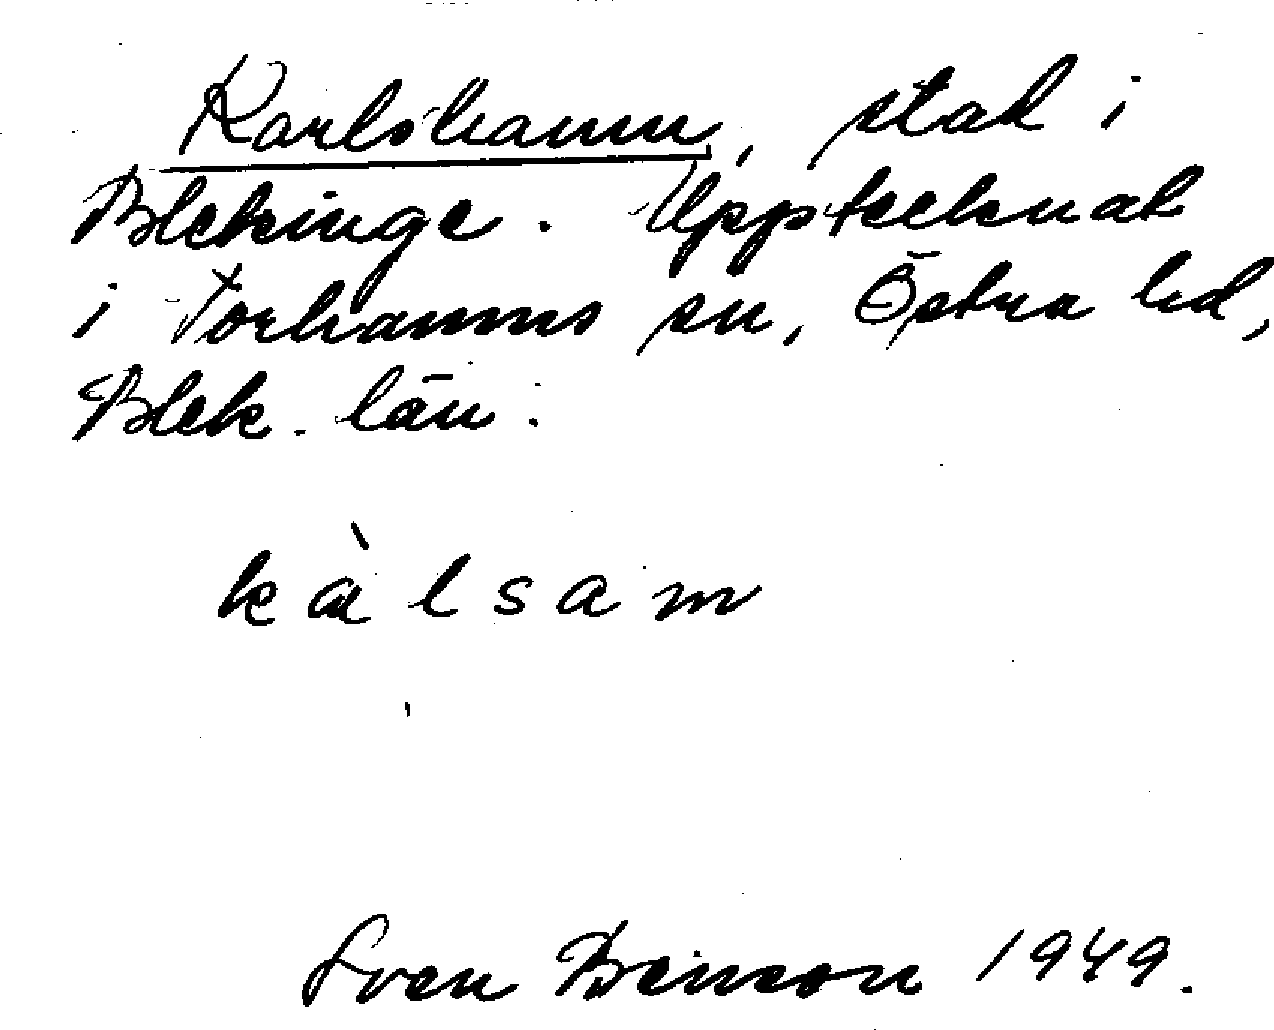 Karlshamn, stad i
Blekinge. Upptecknat
i Torhamns sn, Östra hd,
Blek. län.
kàlsam
Sven Benson 1949.